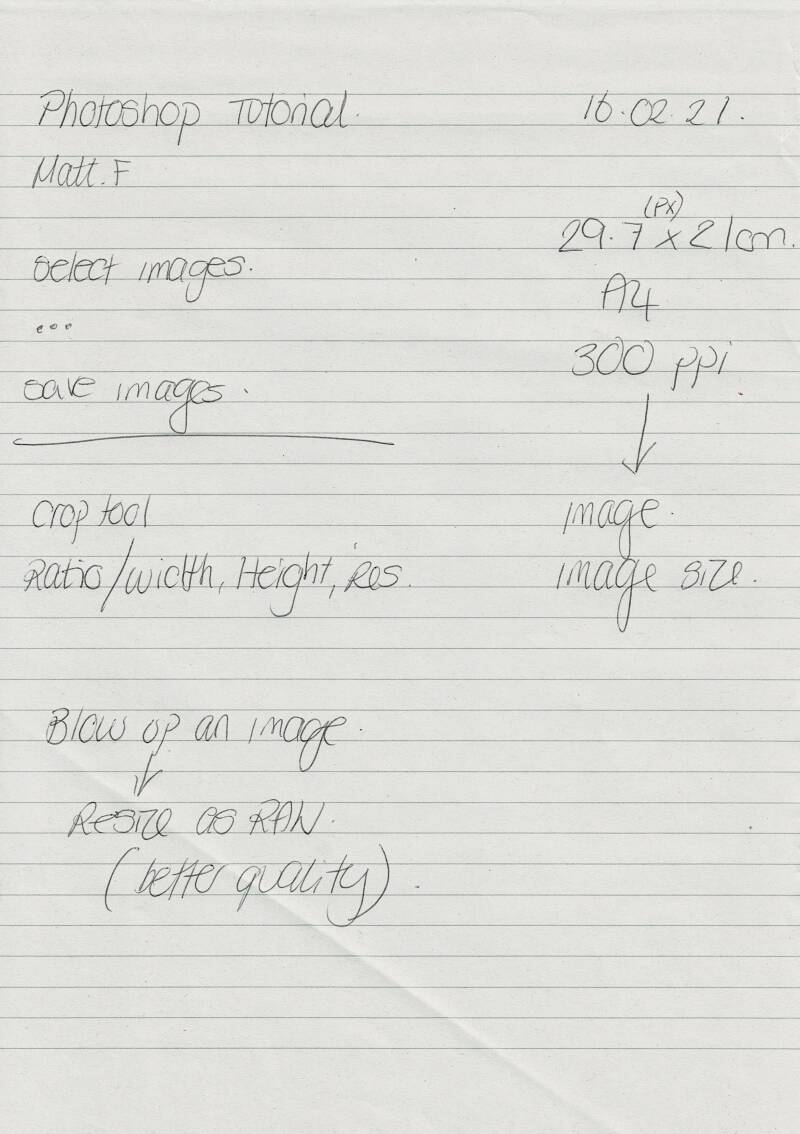 Photoshop Tutorial. 16.02.21.
Matt.F
(PX)
29.7 x 21cm.
select images.
A4
...
300 ppi
save images.
crop tool image.
Ratio/width, Height, Res. image size.
Blow up an image.
Resize as RAW.
(better quality).